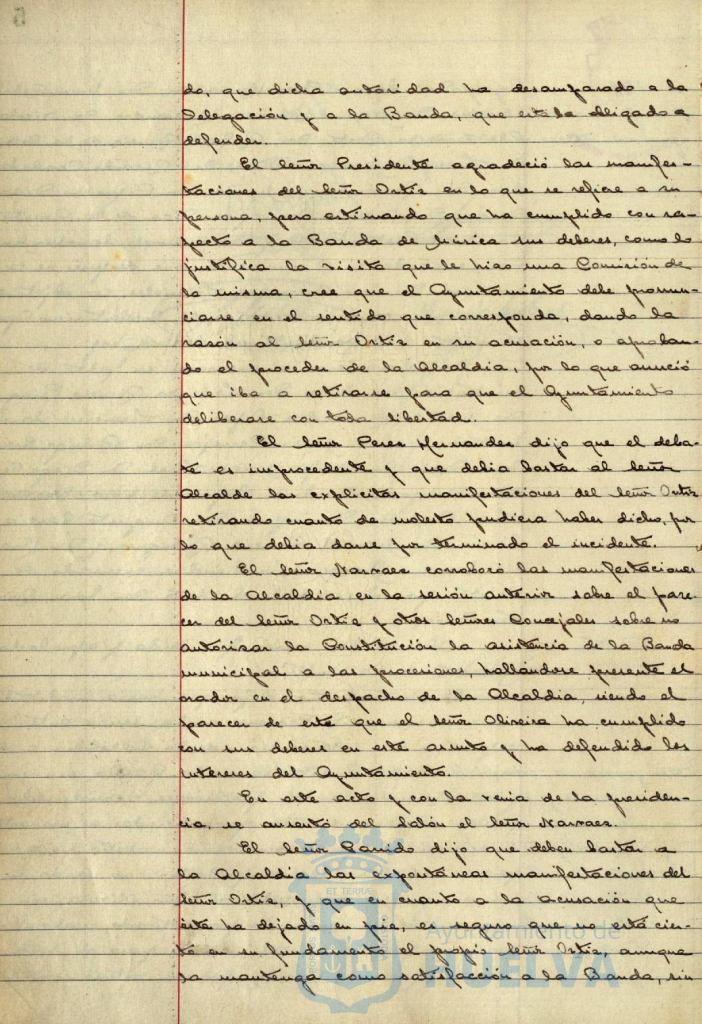 do, que dicha autoridad ha desamparado a la
Delegación y a la Banda, que está obligado a
defender.
El Señor Presidente agradeció las manifes-
taciones del Señor Ortiz en lo que se refiere a su
persona, pero estimando que ha cumplido con res-
pecto a la Banda de Música sus deberes, como lo
justifica la visita que le hizo una Comisión de
la misma, cree que el Ayuntamiento debe pronun-
ciarse en el sentido que corresponda, dando la
razón al Señor Ortiz en su acusación, o aproban-
do el proceder de la Alcaldía, por lo que anunció
que iba a retirarse para que el Ayuntamiento
deliberase con toda libertad.
El Señor Perez Hernandez dijo que el deba-
te es improcedente y que debia bastar al Señor
Alcalde las explícitas manifestaciones del Señor Ortiz
retirando cuanto de molesto pudiera haber dicho, por
lo que debia darse por terminado el incidente.
El Señor Narvaez corroboró las manifestaciones
de la Alcaldia en la sesión anterior sobre el pare-
cer del Señor Ortiz y otros Señores Concejales sobre no
autorizar la Constitución la asistencia de la Banda
municipal a las procesiones, hallándose presente el
orador en el despacho de la Alcaldia, siendo el
parecer de este que el Señor Oliveira ha cumplido
con sus deberes en este asunto y ha defendido los
intereses del Ayuntamiento.
En este acto y con la venia de la presiden-
cia, se ausentó del Salón el Señor Narvaez.
El Señor Garrido dijo que deben bastar a
la Alcaldia las expontáneas manifestaciones del
Señor Ortiz, y que en cuanto a la acusación que
éste ha dejado en pie, es seguro que no está cier-
to en su fundamento el propio Señor Ortiz, aunque
la mantenga como satisfacción a la Banda, sin
ET TERRÆ
Ayuntamiento de
HUELVA